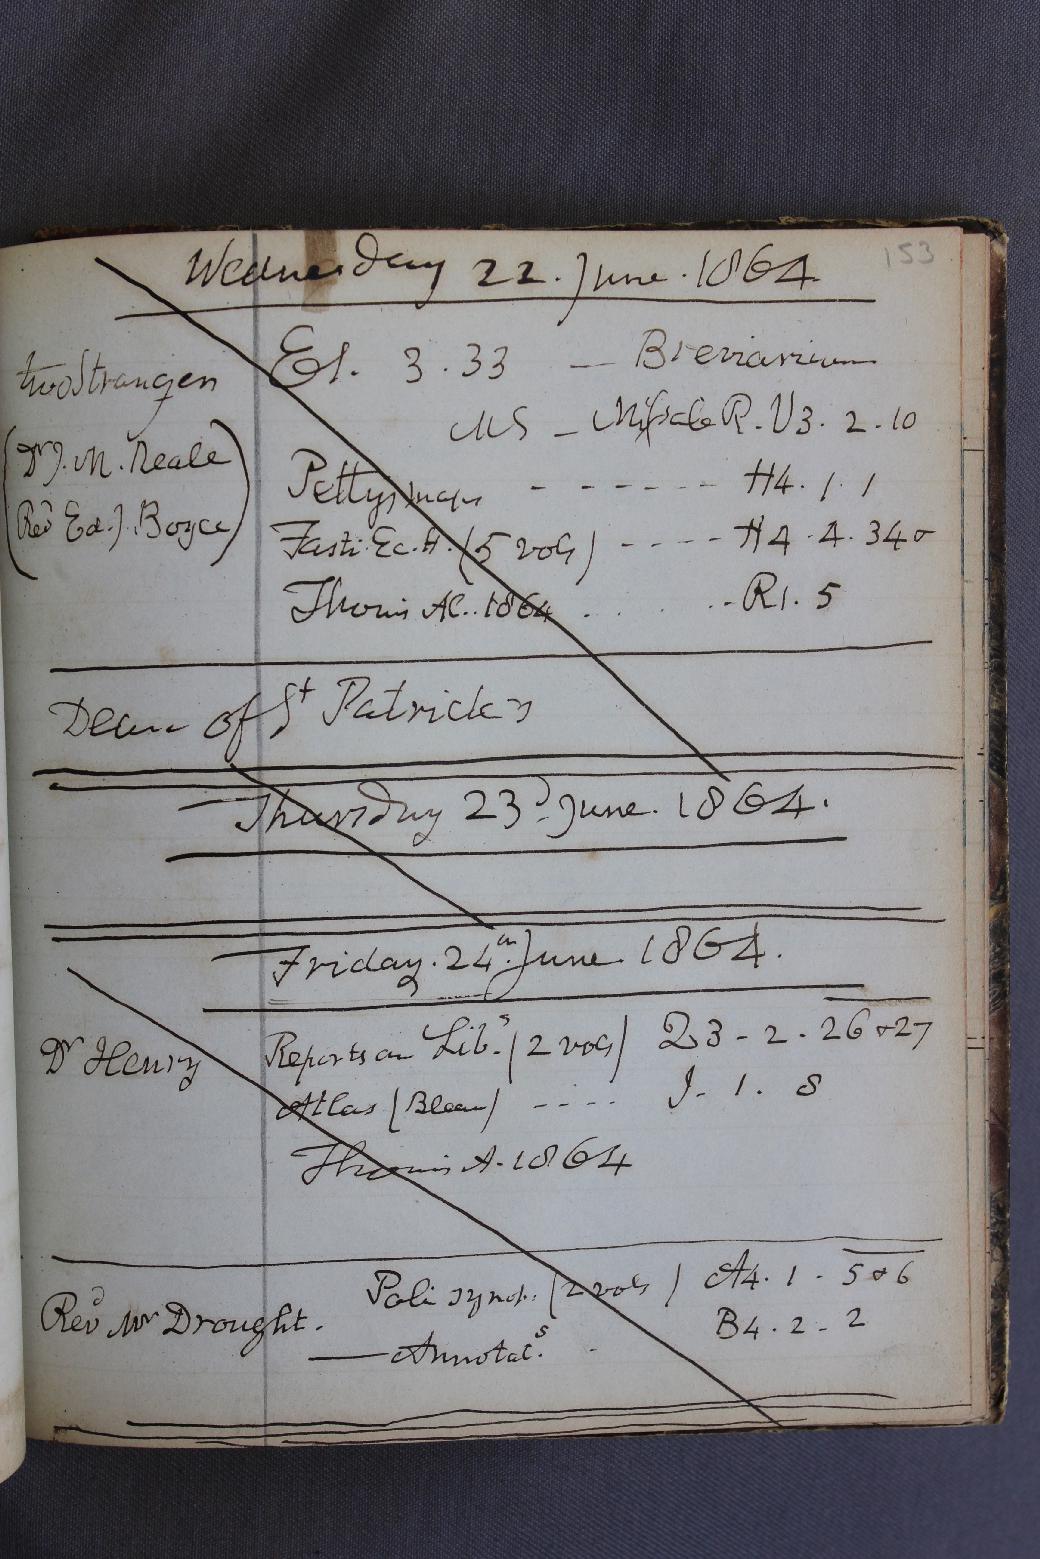 153
Wednesday 22. June. 1864
two Strangers El. 3.33 — Breviarium
MS — Missale R. V3. 2. 10
(Dr J. M. Neale Pettys maps - - - - - - - H4. 1. 1
Revd Ed. J. Boyce) Fasti Ec. H. (5 vols) - - - - H4. 4. 34
Thoms Al. 1864 . . . . . - R1. 5
Dean of St Patricks
Thursday 23d June. 1864.
Friday. 24th June. 1864.
Dr Henry Reports on Libs. (2 vols) Q3 - 2 - 26 & 27
Atlas (Bleau) - - - - J - 1. 8
Thoms A. 1864
Revd Mr Drought. Poli synop. (2 vols) A4. 1 - 5 & 6
— Annotats. B4. 2 - 2